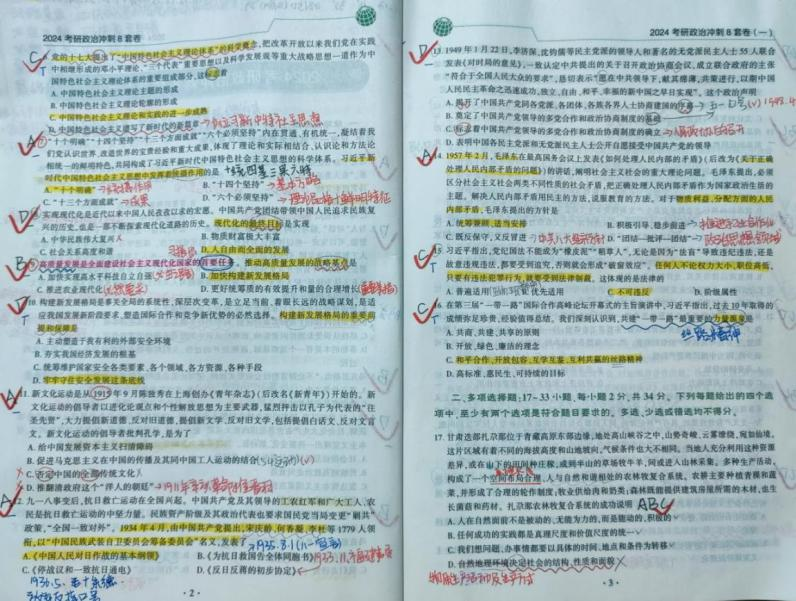 2024 考研政治冲刺 8 套卷
党的十七大提出了“中国特色社会主义理论体系”的科学概念,把改革开放以来我们党在实践
中相继形成的邓小平理论、“三个代表”重要思想以及科学发展观等重大战略思想一道作为中
国特色社会主义理论体系的重要组成部分,这标志着
A. 中国特色社会主义主题的形成
B. 中国特色社会主义理论轮廓的形成
C. 中国特色社会主义理论和实践的进一步成熟
D. 中国特色社会主义谱写了新时代的新篇章
“十个明确”“十四个坚持”“十三个方面成就”“六个必须坚持”内在贯通、有机统一,凝结着我
们党认识世界、改造世界的宝贵经验和重大成果,体现了理论和实际相结合、认识论和方法论
相统一的鲜明特色,共同构成了习近平新时代中国特色社会主义思想的科学体系。习近平新
时代中国特色社会主义思想中发挥着统摄作用的是
A. “十个明确”
B. “十四个坚持”
C. “十三个方面成就”→成果
D. “六个必须坚持”
实现现代化是近代以来中国人民孜孜以求的宏愿。中国共产党团结带领中国人民追求民族复
兴的历史,也是一部不断探索现代化道路的历史。现代化的最终目标是实现
A. 中华民族伟大复兴
B. 物质财富极大丰富
C. 社会关系高度和谐
D. 人自由而全面的发展
高质量发展是全面建设社会主义现代化国家的首要任务。推动高质量发展的战略基点是
A. 实现高水平科技自立自强
B. 加快构建新发展格局
C. 推进农业现代化
D. 更好统筹质的有效提升和量的合理增长
10. 构建新发展格局是事关全局的系统性、深层次变革,是立足当前、着眼长远的战略谋划,是适
应我国发展新阶段要求、塑造国际合作和竞争新优势的必然选择。构建新发展格局的重要前
提和保障是
A. 主动塑造于我有利的外部安全环境
B. 夯实我国经济发展的根基
C. 统筹维护国家安全各类要素、各个领域、各方资源、各种手段
D. 牢牢守住安全发展这条底线
11. 新文化运动是从 1915 年 9 月陈独秀在上海创办《青年杂志》(后改名《新青年》)开始的。新
文化运动的倡导者以进化论观点和个性解放思想为主要武器,猛烈抨击以孔子为代表的“往
圣先贤”,大力提倡新道德、反对旧道德,提倡新文学、反对旧文学,包括提倡白话文、反对文言
文。新文化运动的倡导者批判孔学,是为了
A. 给中国发展资本主义扫清障碍
B. 促进马克思主义在中国的传播及其同中国工人运动的结合
C. 否定中国的全部传统文化
D. 推翻清政府这个“洋人的朝廷”
九一八事变后,抗日救亡运动在全国兴起。中国共产党及其领导的工农红军和广大工人、农
民是抗日救亡运动的中坚力量。民族资产阶级及其政治代表也要求国民党当局变更“剿共”
政策,“全国一致对外”。1934 年 4 月,由中国共产党提出,宋庆龄、何香凝、李杜等 1779 人领
衔,以“中国民族武装自卫委员会筹备委员会”名义,发表了
A. 《中国人民对日作战的基本纲领》
B. 《为抗日救国告全体同胞书》
C. 《停战议和一致抗日通电》
D. 《反日反蒋的初步协定》
· 2 ·
2024 考研政治冲刺 8 套卷(一)
13. 1949 年 1 月 22 日,李济深、沈钧儒等民主党派的领导人和著名的无党派民主人士 55 人联合
发表《对时局的意见》,一致认定中共提出的关于召开政治协商会议、成立联合政府的主张
“符合于全国人民大众的要求”,恳切表示“愿在中共领导下,献其绵薄,共策进行,以期中国
人民民主革命之迅速成功,独立、自由、和平、幸福的新中国之早日实现”。这个政治声明
A. 揭开了中国共产党同各党派、各团体、各族各界人士协商建国的序幕
B. 奠定了中国共产党领导的多党合作和政治协商制度的基础
C. 标志着中国共产党领导的多党合作和政治协商制度的确立
D. 表明中国各民主党派和无党派民主人士公开自愿接受中国共产党的领导
14. 1957 年 2 月,毛泽东在最高国务会议上发表《如何处理人民内部的矛盾》(后改为《关于正确
处理人民内部矛盾的问题》)的讲话,阐明社会主义社会的重大理论问题。毛泽东提出,必须
区分社会主义社会两类不同性质的社会矛盾,把正确处理人民内部矛盾作为国家政治生活的
主题。解决人民内部矛盾用民主的方法,说服教育的方法。对于物质利益、分配方面的人民
内部矛盾,毛泽东提出的方针是
A. 统筹兼顾、适当安排
B. 积极引导、稳步前进
C. 既反保守,又反冒进
D. “团结—批评—团结”
15. 习近平指出,党纪国法不能成为“橡皮泥”“稻草人”,无论是因为“法盲”导致违纪违法,还是
故意违规违法,都要受到追究,否则就会形成“破窗效应”。任何人不论权力大小、职位高低,
只要有违法犯罪行为,就要受到法律制裁。这体现的是法律的
A. 普遍适用
B. 优先适用
C. 不可违反
D. 阶级属性
16. 在第三届“一带一路”国际合作高峰论坛开幕式的主旨演讲中,习近平指出,过去 10 年取得的
成绩弥足珍贵,经验值得总结。我们深刻认识到,共建“一带一路”最重要的力量源泉是
A. 共商、共建、共享的原则
丝路精神
B. 开放、绿色、廉洁的理念
C. 和平合作、开放包容、互学互鉴、互利共赢的丝路精神
D. 高标准、惠民生、可持续的目标
二、多项选择题:17~33 小题,每小题 2 分,共 34 分。下列每题给出的四个选
项中,至少有两个选项是符合题目要求的。多选、少选或错选均不得分。
17. 甘肃迭部扎尕那位于青藏高原东部边缘,地处高山峡谷之中,山势奇峻、云雾缭绕,宛如仙境,
这片区域有着不同的海拔高度和山地坡向,气候条件也大不相同。当地人充分利用这种资源
差异,或在山下的田间种庄稼,或到半山的草场牧牛羊,间或进入山林采集。多种生产活动,
构成了一个空间布局合理、人与自然和谐相处的农林牧复合系统。农耕主要种植青稞和蔬
菜,并形成了合理的轮作制度;牧业供给肉和奶类;森林既能提供建筑房屋所需的木材,也生
长菌菇和药材。扎尕那农林牧复合系统的成功说明 ABC
A. 人在自然面前不是被动的、无能为力的,而是能动的、积极的
B. 任何成功的实践都是真理尺度和价值尺度的统一
C. 我们想问题、办事情都要以具体的时间、地点和条件为转移
D. 自然地理环境决定社会的结构、性质和面貌
· 3 ·